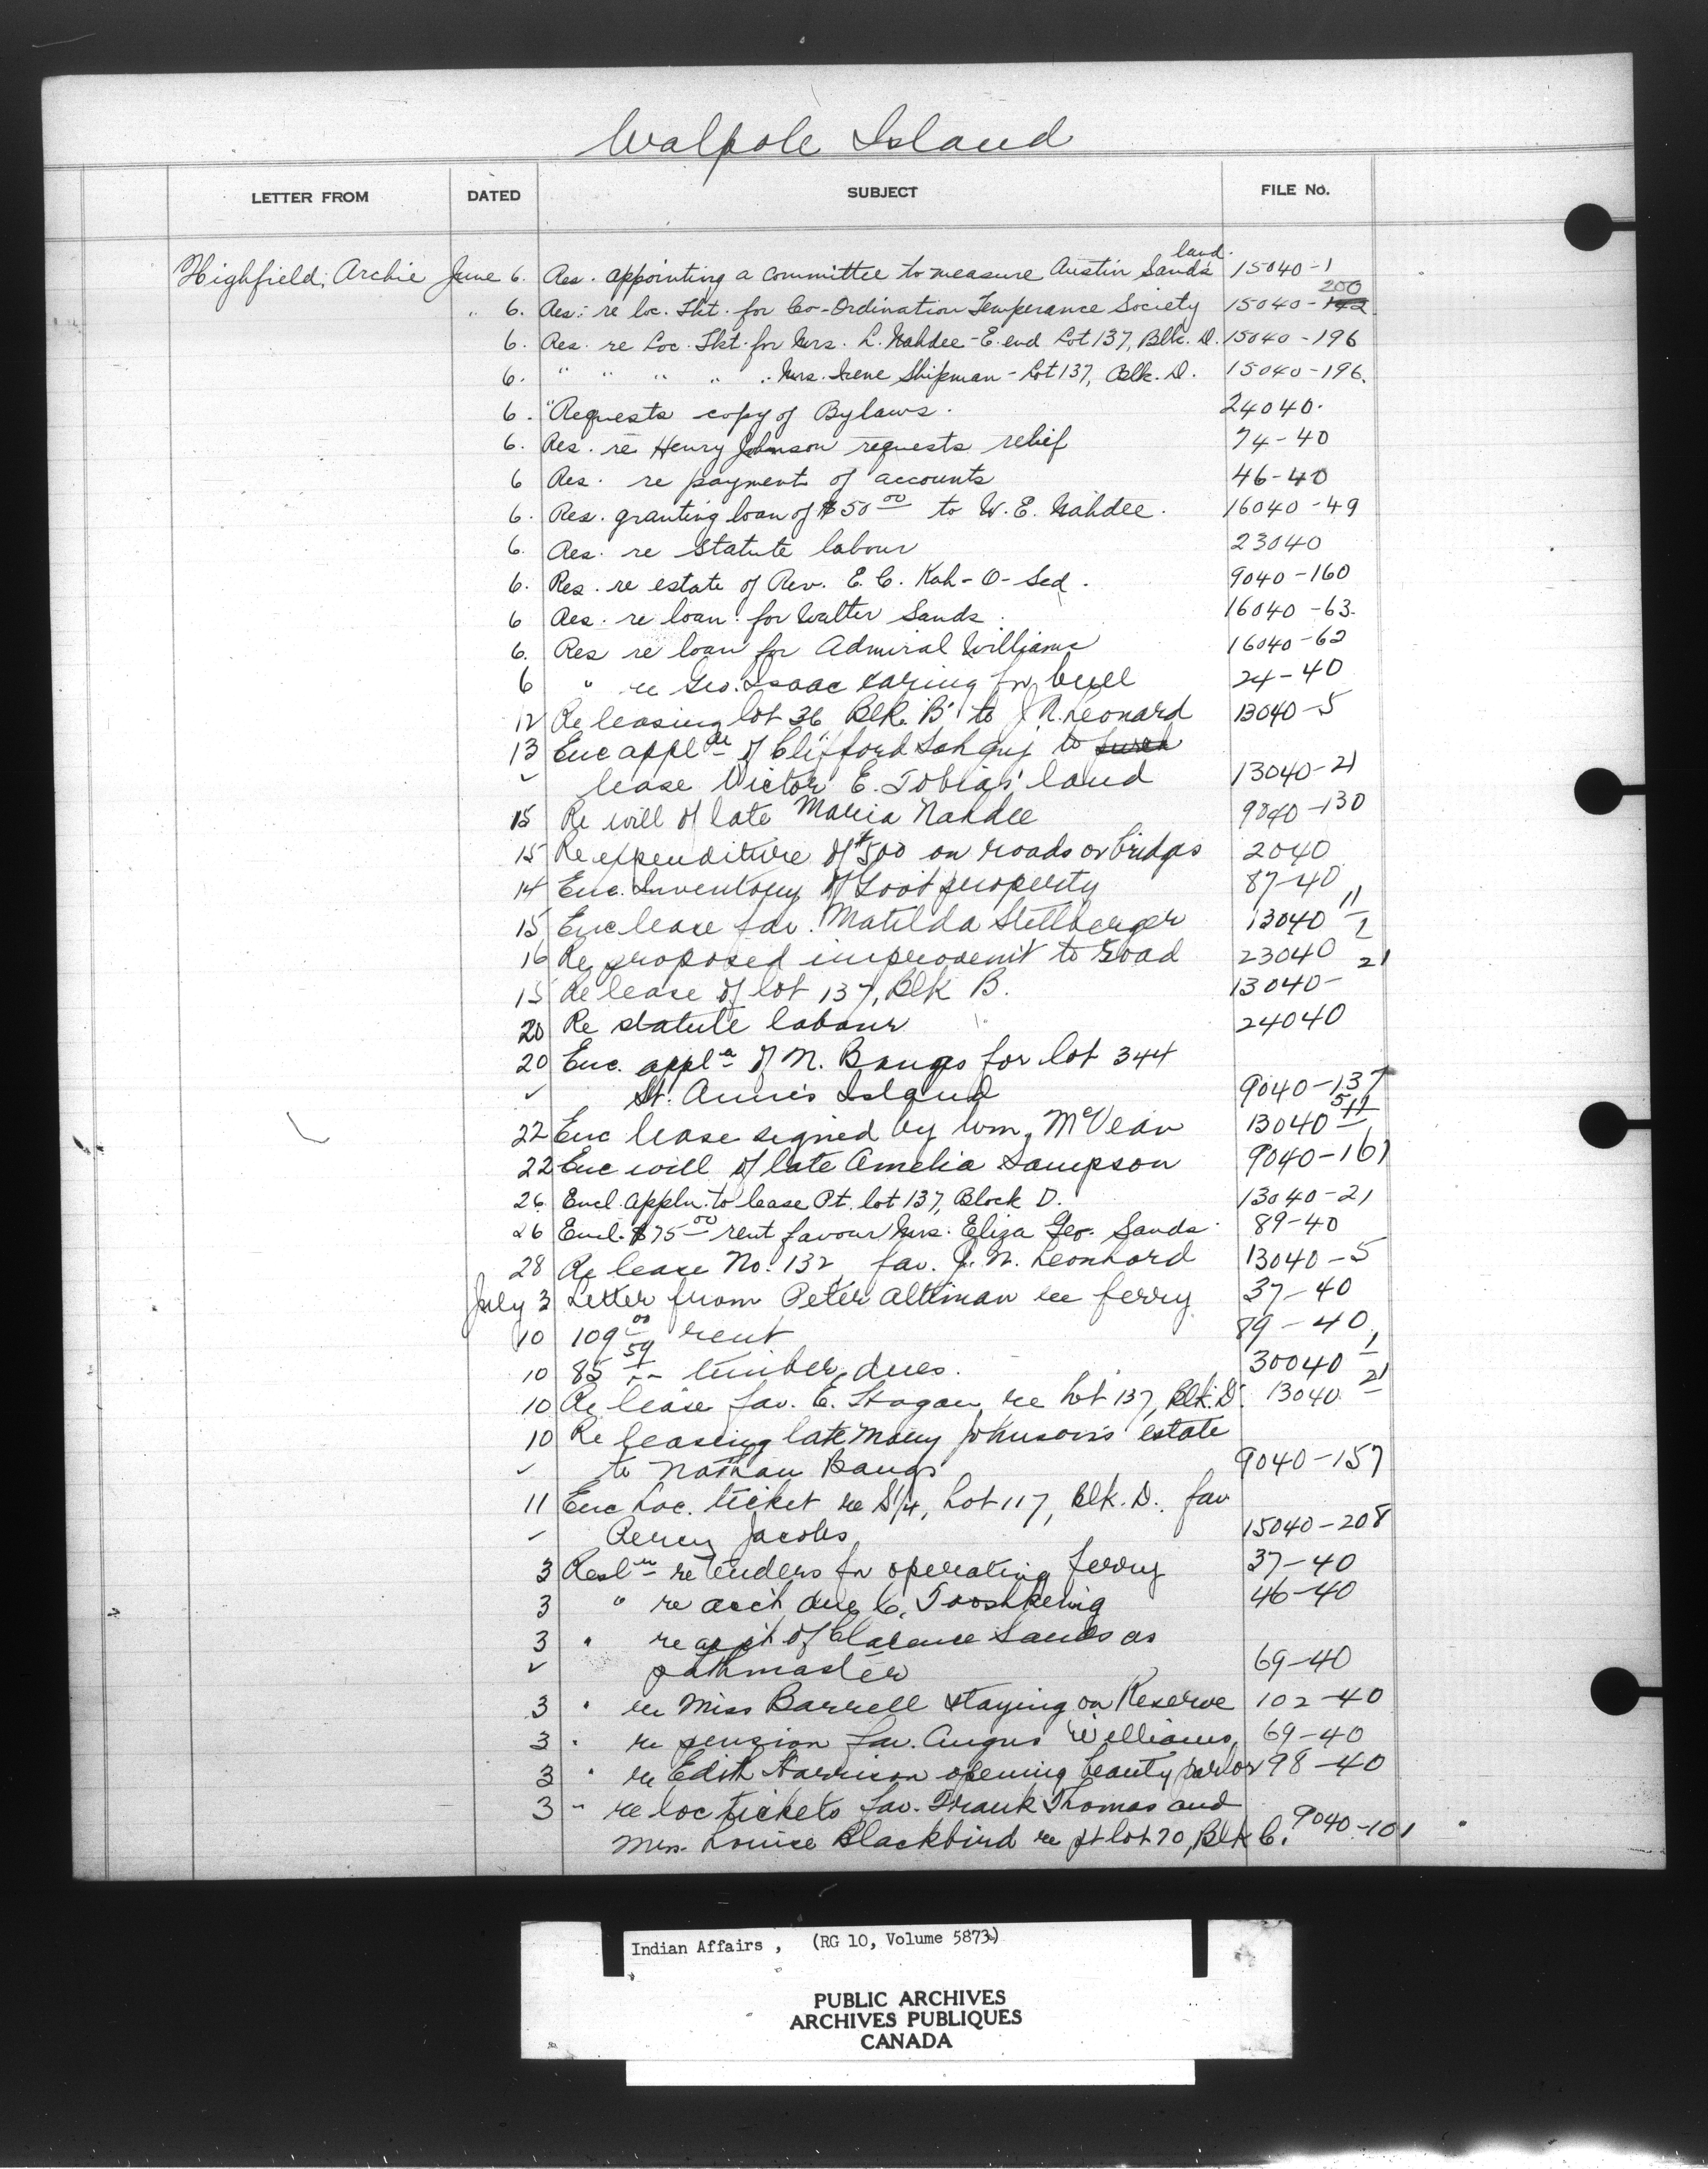 Walpole Island
LETTER FROM DATED SUBJECT FILE No.
Highfield, Archie June 6. Res. appointing a committee to measure Austin Sands land. 15040-1
" 6. Res. re loc. Tkt. for Co-Ordination Temperance Society 15040-142 200
6. Res. re Loc. Tkt. for Mrs. L. Nahdee - E. end Lot 137, Blk. D. 15040-196
6. " " " " " Mrs. Irene Shipman - Lot 137, Blk. D. 15040-196.
6. "Requests copy of Bylaws. 24040.
6. Res. re Henry Johnson requests relief 74-40
6 Res. re payment of accounts 46-40
6. Res. granting loan of $50 00 to W. E. Nahdee. 16040-49
6. Res. re Statute labour 23040
6. Res. re estate of Rev. E. C. Kah-O-Sed. 9040-160
6 Res. re loan for Walter Sands 16040-63.
6. Res re loan for Admiral Williams 16040-62
6 " re Geo. Isaac caring for bull 24-40
12 Re leasing lot 36 Blk. B' to J. N. Leonard 13040-5
13 Enc appl of Clifford to
lease Victor E. Tobias' land 13040-21
15 Re will of late Maria Nahdee 9040-130
15 Re expenditure of $500 on roads or bridges 2040
14 Enc. Inventory of Govt property 87-40
15 Enc lease fav. Matilda Stellberger 13040 11/1
16 Re proposed improvem't to road 23040
15 Re lease of lot 137, Blk B. 13040-21
20 Re statute labour 24040
20 Enc. appl n of N. Bangs for lot 344
St. Anne's Island 9040-137
22 Enc lease signed by Wm. McVean 13040 5 11
22 Enc will of late Amelia Sampson 9040-161
26 Encl. appln. to lease Pt. lot 137, Block D. 13040-21
26 Encl. $75 00 rent favour Mrs. Eliza Geo. Sands. 89-40
28 Re lease No. 132 fav. J. N. Leonhard 13040-5
July 3 Letter from Peter Altiman re ferry 37-40
10 109 00 rent 89-40
10 85 59 timber dues. 30040 1
10 Re lease fav. E. Hagan re lot 137, Blk. D. 13040 21
10 Re leasing late Mary Johnson's estate
to Nathan Bangs 9040-157
11 Enc Loc. ticket re S 1/4, Lot 117, Blk. D. fav
Percy Jacobs 15040-208
3 Resl n re tenders for operating ferry 37-40
3 " re acct due C. Tooshkenig 46-40
3 " re app't of Clarence Sands as
pathmaster 69-40
3 " re Miss Barrell staying on Reserve 102-40
3 " re pension fav. Angus Williams 69-40
3 " re Edith Harrison opening beauty parlor 98-40
3 " re loc tickets fav. Frank Thomas and
Mrs. Louise Blackbird re pt lot 70, Blk C. 9040-101
Indian Affairs , (RG 10, Volume 5873)
PUBLIC ARCHIVES
ARCHIVES PUBLIQUES
CANADA